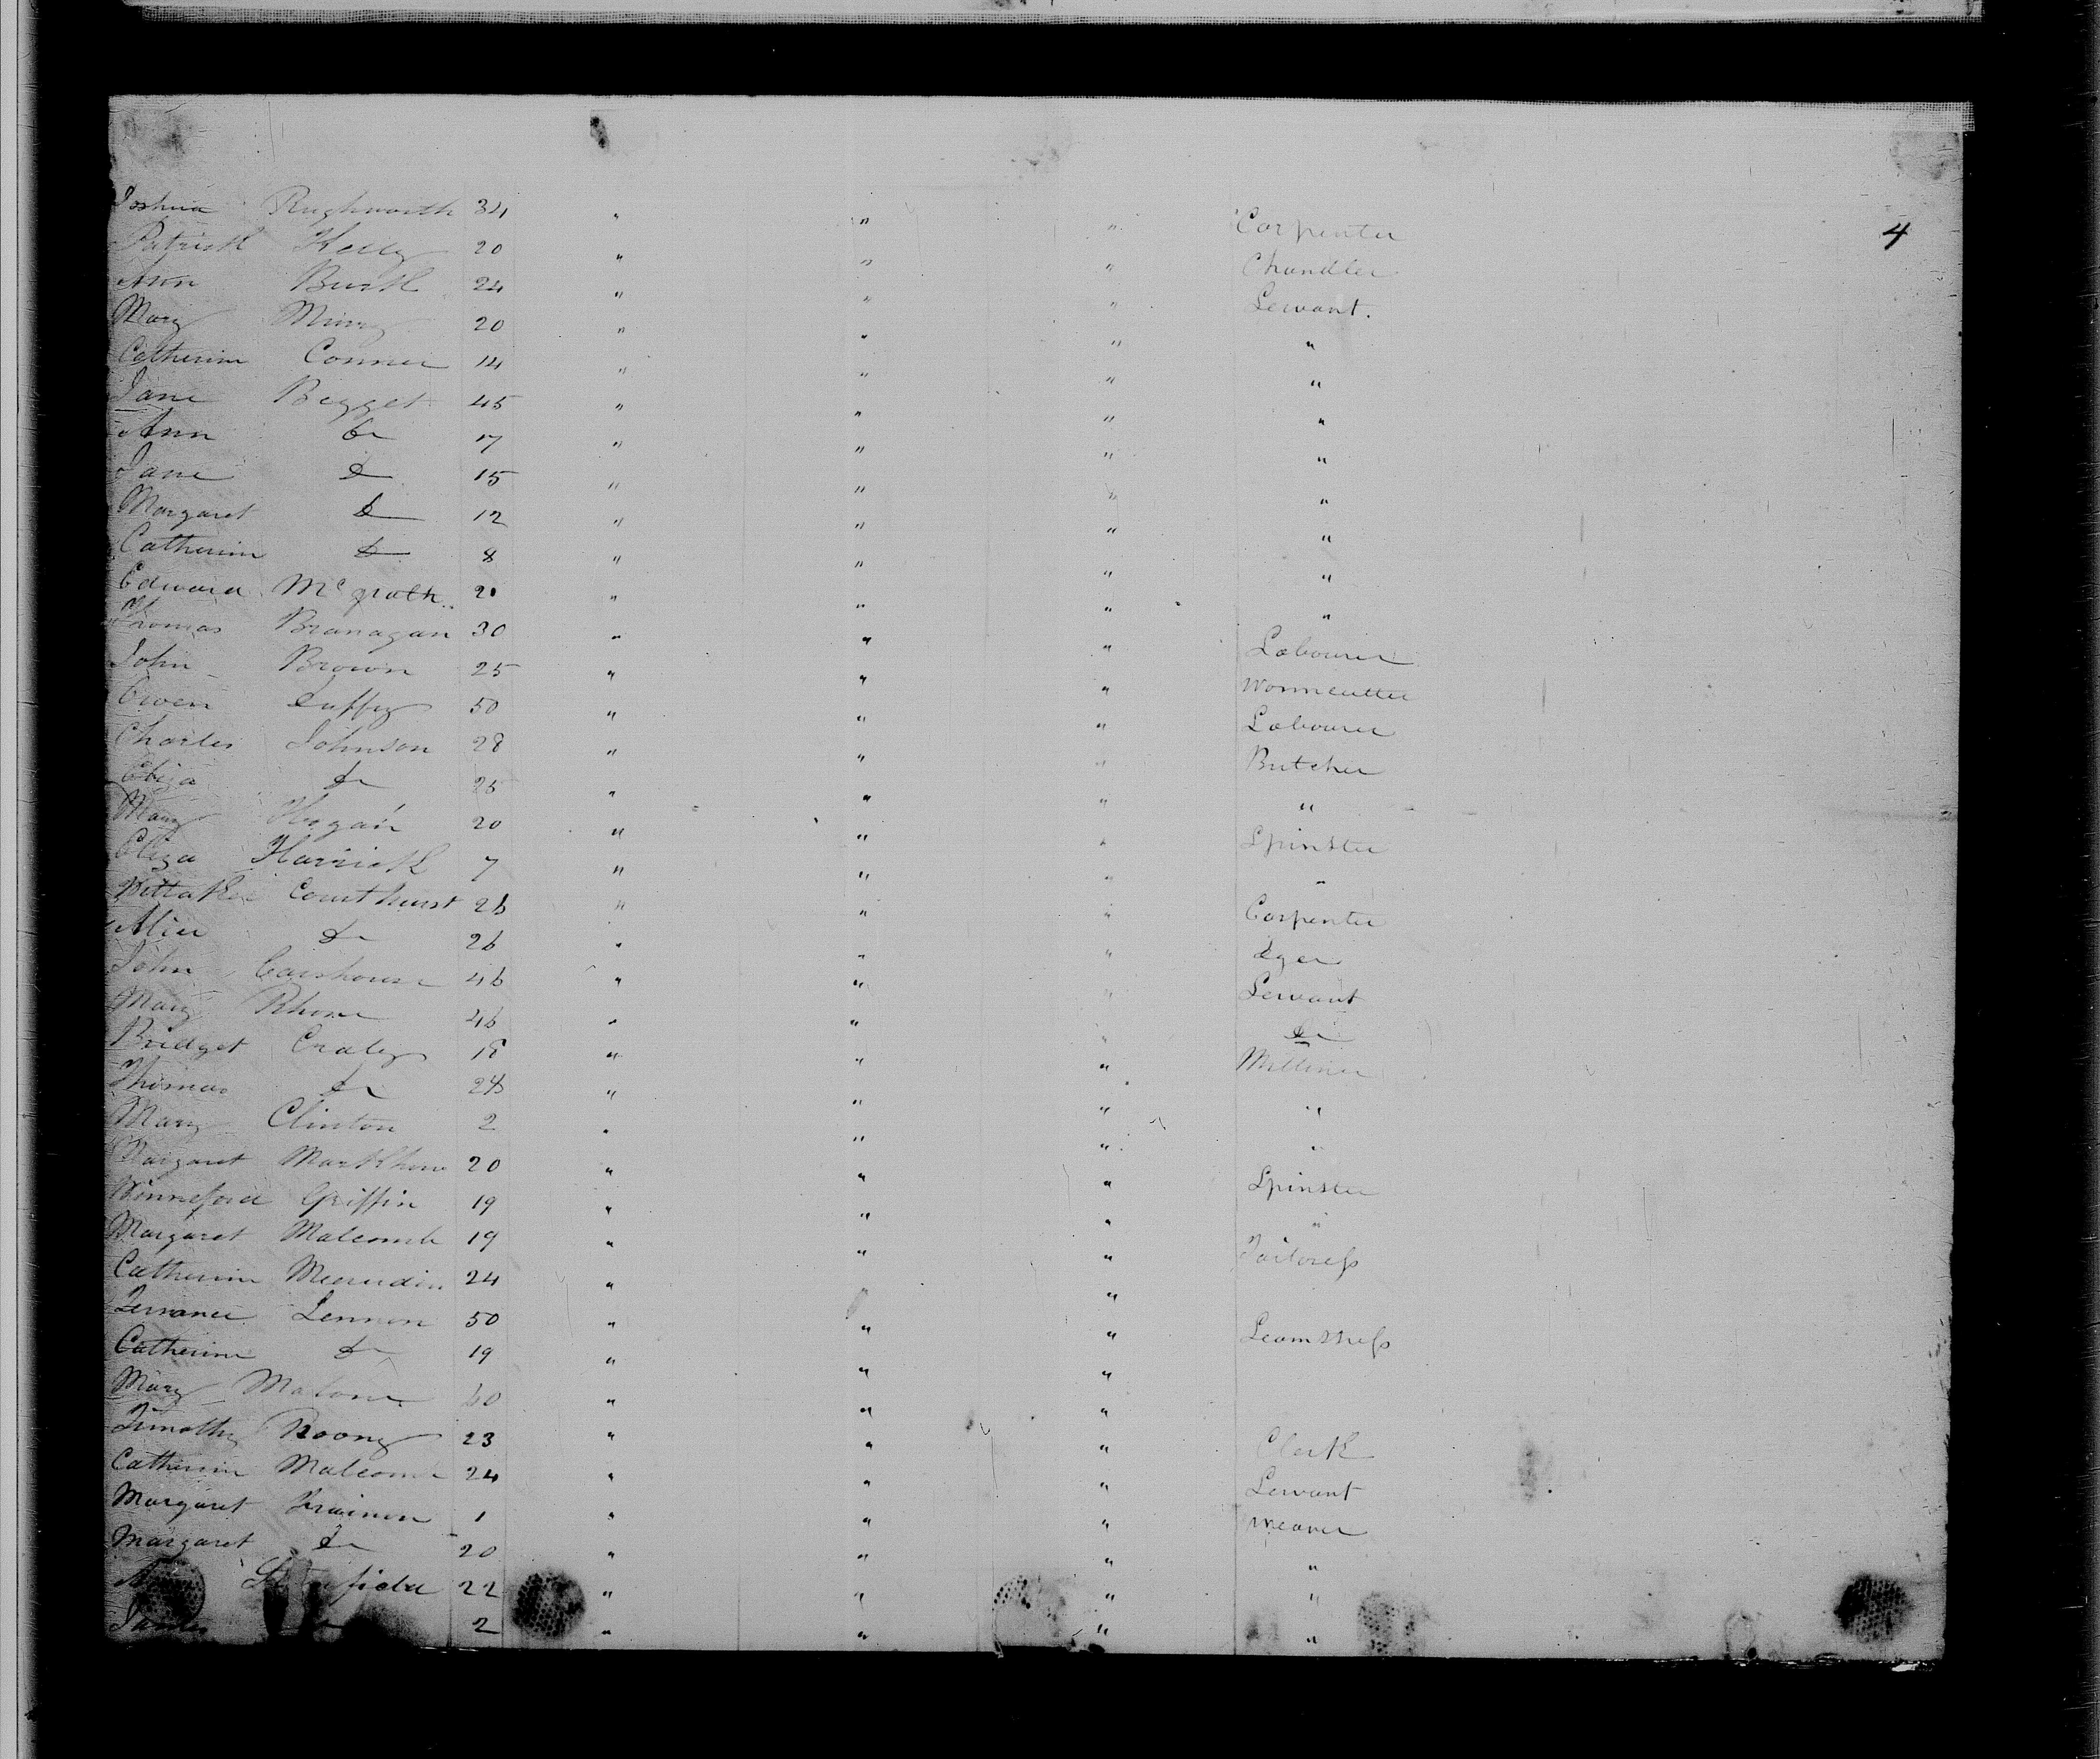 4
Joshua Rughworth 34 " " " Carpenter
Patrick Kelly 20 " " " Chandler
Ann Burk 24 " " " Servant.
Mary Murry 20 " " " "
Catherine Conner 14 " " " "
Jane Bigget 45 " " " "
Ann Do 17 " " " "
Jane Do 15 " " " "
Margaret Do 12 " " " "
Catherine Do 8 " " " "
Edward Mc grath 20 " " " "
Thomas Branagan 30 " " " Labourer
John Brown 25 " " "
Owen Duffy 50 " " " Labourer
Charles Johnson 28 " " " Butcher
Eliza Do 25 " " " "
Mary Hogan 20 " " " Spinster
Eliza Harrick 7 " " " "
Wittaker Courthurst 26 " " " Carpenter
Alice Do 26 " " " Dyer
John Carshouse 46 " " " Servant
Mary Rhone 46 " " " Do
Bridget Craley 18 " " " Milliner
Thomas Do 28 " " " "
Mary Clinton 2 " " " "
Margaret Markham 20 " " " Spinster
Winneford Griffin 19 " " " "
Margaret Malcomb 19 " " " Tailoress
Catherine 24 " "
Terrance Lennon 50 " " " Seamstress
Catherine Do 19 " " "
Mary Malone 60 " " "
Timothy Roony 23 " " " Clerk
Catherine Malcomb 24 " " " Servant
Margaret Trainon 1 " " " weaver
Margaret Do 20 " " " "
22 " " " "
James Do 2 " " " "